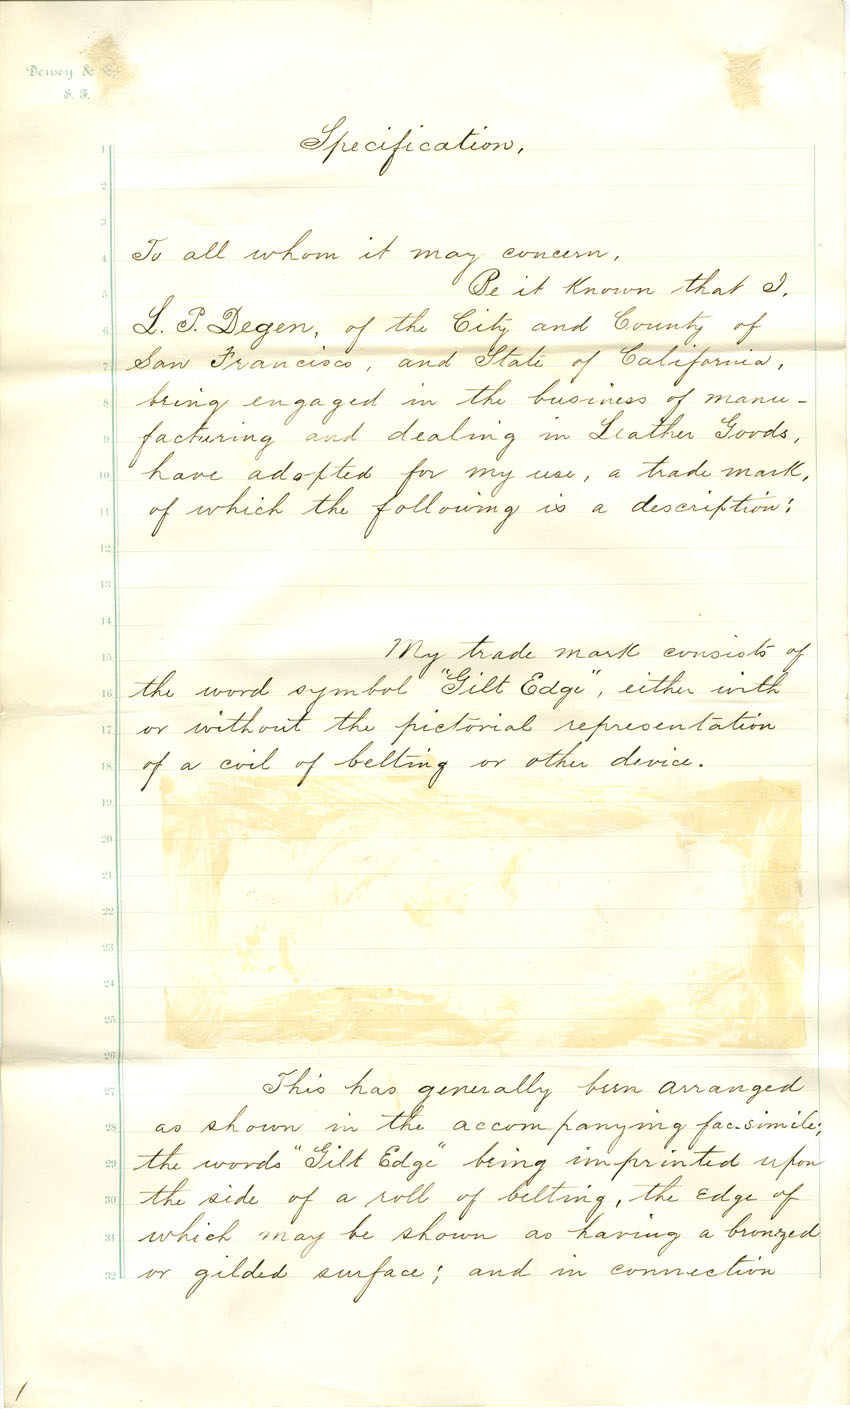 Dewey &
S. F.
Specification.
1
2
3
4 To all whom it may concern,
5 Be it Known that I.
6 L. P. Degen, of the City and County of
7 San Francisco, and State of California,
8 being engaged in the business of manu-
9 facturing and dealing in Leather Goods,
10 have adopted for my use, a trade mark,
11 of which the following is a description;
12
13
14
15 My trade mark consists of
16 the word symbol "Gilt Edge", either with
17 or without the pictorial representation
18 of a coil of belting or other device.
19
20
21
22
23
24
25
26
27 This has generally been arranged
28 as shown in the accompanying fac-simile;
29 the words "Gilt Edge" being imprinted upon
30 the side of a roll of belting, the edge of
31 which may be shown as having a bronzed
32 or gilded surface; and in connection
1